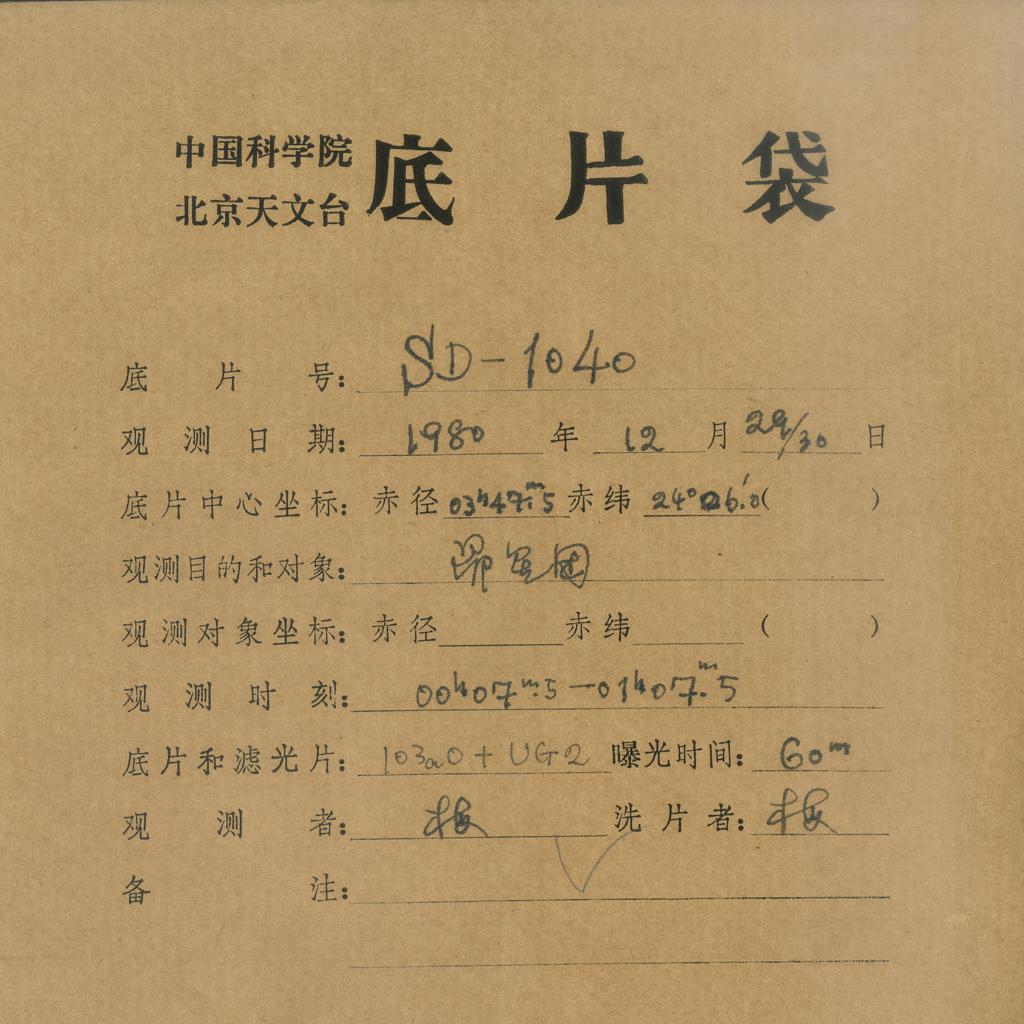 中国科学院
北京天文台
底片袋
底片号：SD-1040
观测日期：1980年12月29/30日
底片中心坐标：赤径03ʰ47ᵐ.5赤纬24°26'.0( )
观测目的和对象：昴星团
观测对象坐标：赤径 赤纬 ( )
观测时刻：00ʰ07ᵐ.5—01ʰ07ᵐ.5
底片和滤光片：103aO+UG2 曝光时间：60ᵐ
观测者： 洗片者：
备注：